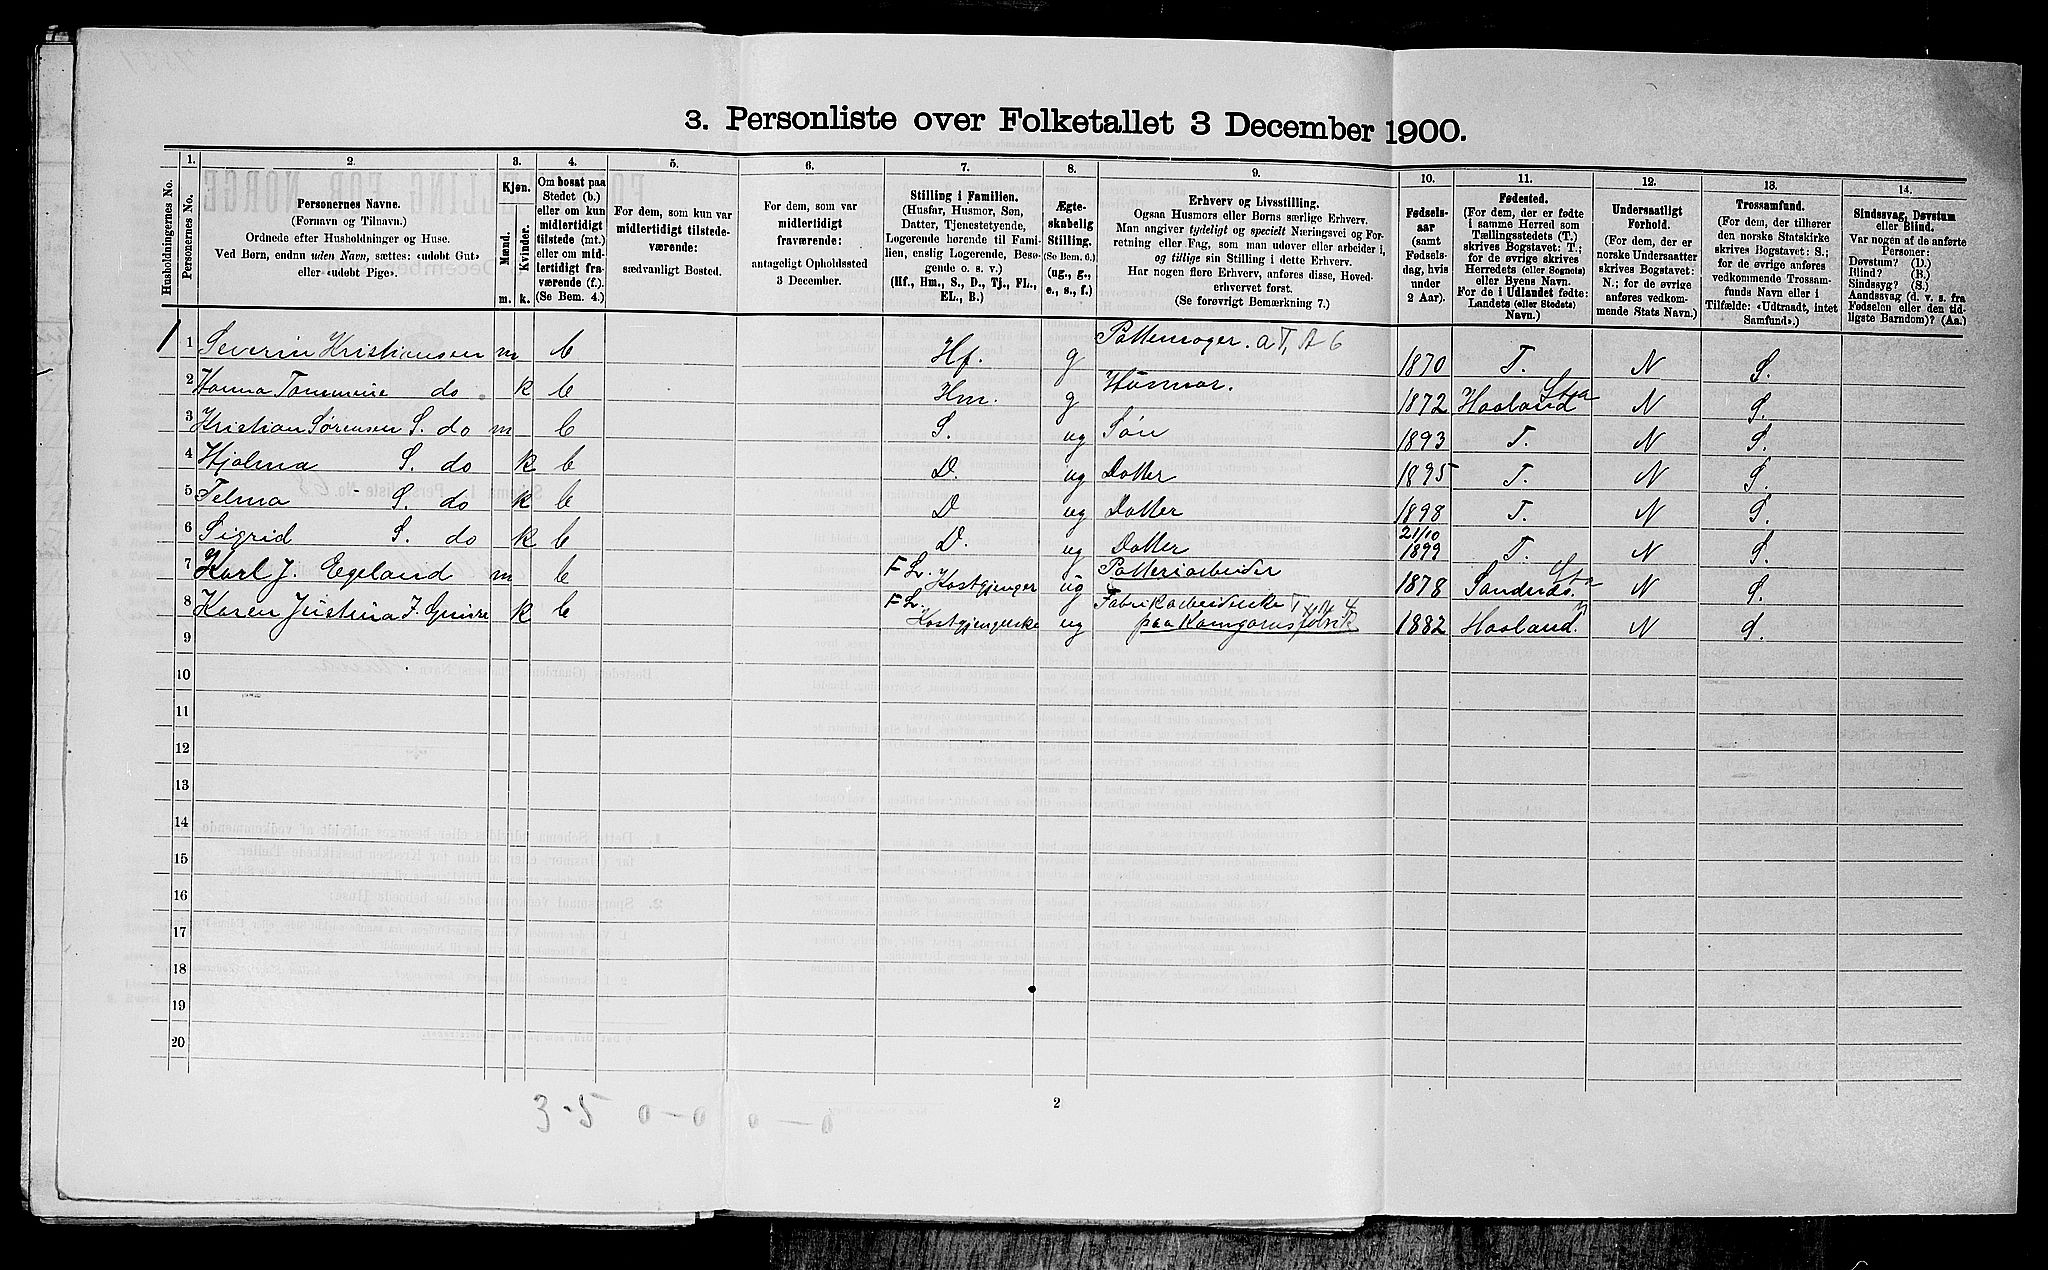 3. Personliste over Folketallet 3 December 1900.
Husholdningernes No.
1.
Personernes No.
2.
Personernes Navne.
(Fornavn og Tilnavn.)
Ordnede efter Husholdninger og Huse.
Ved Børn, endnu uden Navn, sættes: «udøbt Gut»
eller «udøbt Pige».
3.
Kjøn.
Mænd.
Kvinder.
m.
k.
4.
Om bosat paa
Stedet (b.)
eller om kun
midlertidigt
tilstede (mt.)
eller om mid-
lertidigt fra-
værende (f.).
(Se Bem. 4.)
5.
For dem, som kun var
midlertidigt tilstede-
værende:
sædvanligt Bosted.
6.
For dem, som var
midlertidigt
fraværende:
antageligt Opholdssted
3 December.
7.
Stilling i Familien.
(Husfar, Husmor, Søn,
Datter, Tjenestetyende,
Logerende hørende til Fami-
lien, enslig Logerende, Besø-
gende o. s. v.)
(Hf., Hm., S., D., Tj., FL.,
EL., B.)
8.
Ægte-
skabelig
Stilling.
(Se Bem. 6.)
(ug., g.,
e., s., f.)
9.
Erhverv og Livsstilling.
Ogsaa Husmors eller Børns særlige Erhverv.
Man angiver tydeligt og specielt Næringsvei og For-
retning eller Fag, som man udøver eller arbeider i,
og tillige sin Stilling i dette Erhverv.
Har nogen flere Erhverv, anføres disse, Hoved-
erhvervet først.
(Se forøvrigt Bemærkning 7.)
10.
Fødsels-
aar
(samt
Fødsels-
dag, hvis
under
2 Aar).
11.
Fødested.
(For dem, der er fødte
i samme Herred som
Tællingsstedets (T.)
skrives Bogstavet: T.;
for de øvrige skrives
Herredets (eller Sognets)
eller Byens Navn.
For de i Udlandet fødte:
Landets (eller Stedets)
Navn.)
12.
Undersaatligt
Forhold.
(For dem, der er
norske Undersaatter
skrives Bogstavet:
N.; for de øvrige
anføres vedkom-
mende Stats Navn.)
13.
Trossamfund.
(For dem, der tilhører
den norske Statskirke
skrives Bogstavet: S.;
for de øvrige anføres
vedkommende Trossam-
funds Navn eller i
Tilfælde: «Udtraadt, intet
Samfund».)
14.
Sindssvag, Døvstum
eller Blind.
Var nogen af de anførte
Personer:
Døvstum? (D.)
Blind? (B.)
Sindssyg? (S.)
Aandssvag (d. v. s. fra
Fødselen eller den tid-
ligste Barndom)? (Aa.)
1 1 Severin Kristiansen m b Hf. g Pottemager. a T, A 6 1870 T. N S.
2 Hanna Tommine do k b Hm. g Husmor. 1872 Haaland Sta N S.
3 Kristian Sørensen S. do m b S. ug Søn 1893 T. N S.
4 Hjalma S. do k b D. ug Datter 1895 T. N S.
5 Telma S. do k b D ug Datter 1898 T. N S.
6 Sigrid S. do k b D. ug Datter 21/10 1899 T. N S.
7 Karl J. Egeland m b F L. Kostgjenger ug Potteriarbeider 1878 Sandnæs. Sta N S.
8 Karen Justina J. k b F L. Kostgjengerske ug Fabrikarbeiderske
paa Kamgarnsfabrik 1882 Haaland. N S.
9
10
11
12
13
14
15
16
17
18
19
20
3-5 0-0 0-0
2